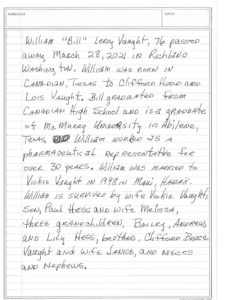 William "Bill" Leroy Vaught, 76 passed
away March 28, 2021 in Richland
Washington. William was born in
Canadian, Texas to Clifford Hood and
Lois Vaught. Bill graduated from
Canadian High School and is a graduate
of McMurry University in Abilene,
Texas William worked as a
pharmaceutical representative for
over 30 years. William was married to
Vickie Vaught in 1998 in Maui, Hawaii.
William is survived by wife Vickie Vaught,
Son, Paul Hess and wife Melissa,
three grandchildren, Bailey, Andrew,
and Lily Hess, brother, Clifford Bruce
Vaught and wife Janice, and nieces
and Nephews.